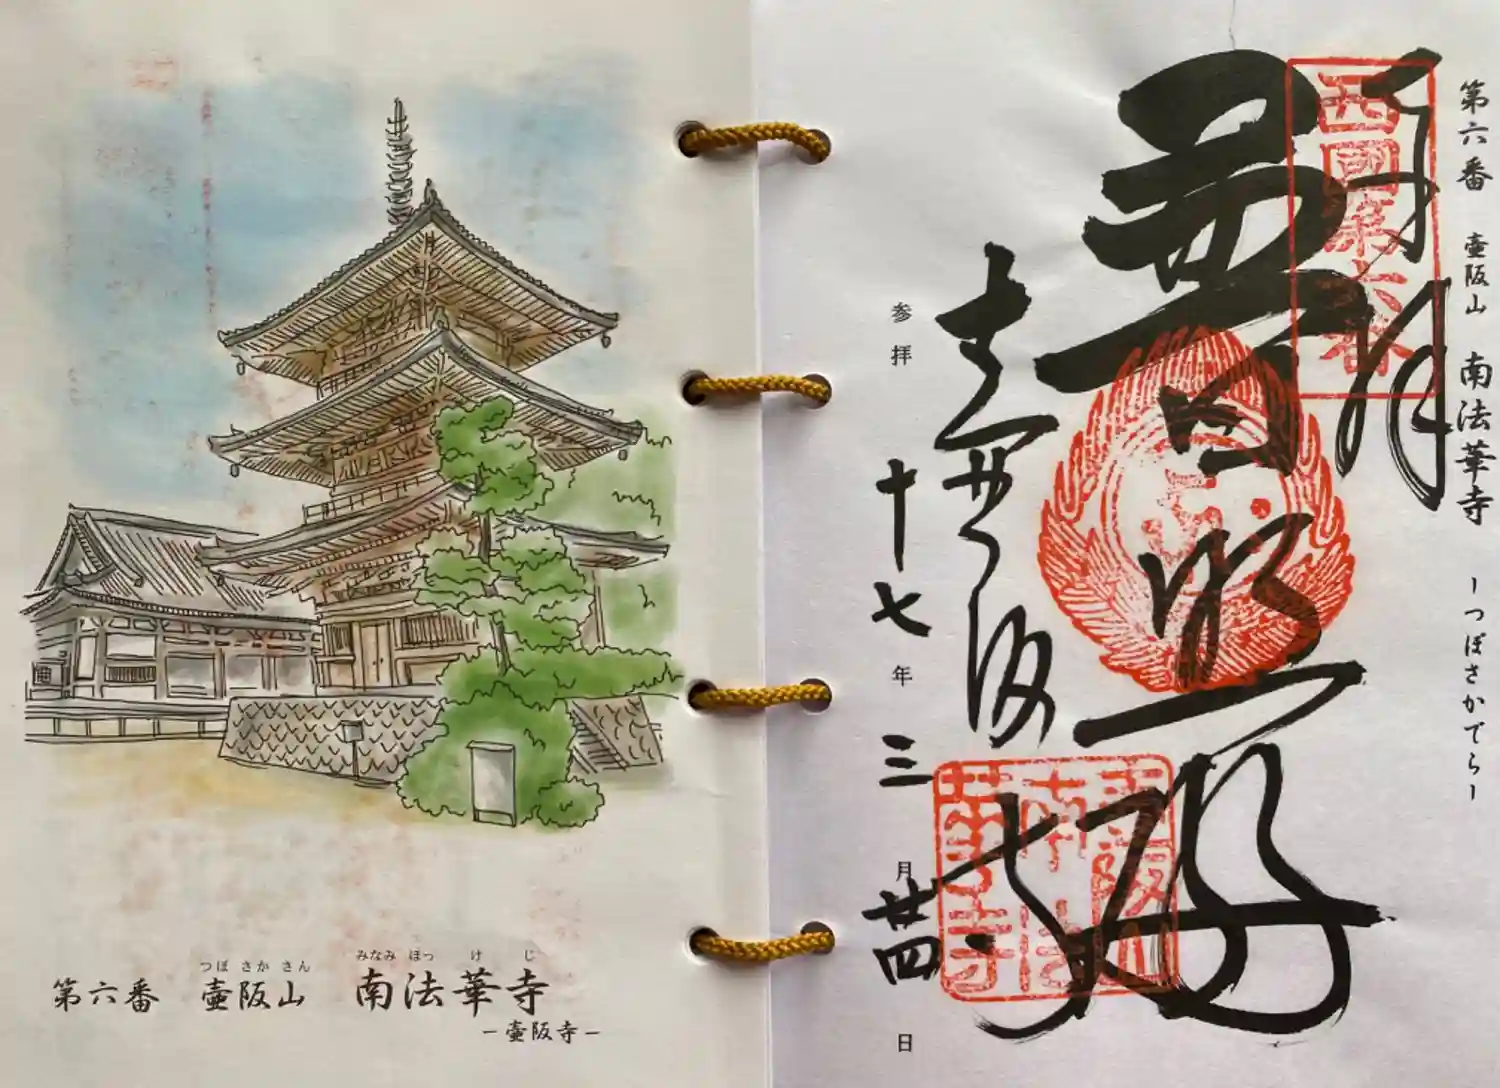 つぼ さか さん みなみ ほっ け じ
第六番 壷阪山 南法華寺
−壷阪寺−
第六番 壷阪山 南法華寺 −つぼさかでら−
奉拝
西國第六番
普照殿
南法華寺
参拝 十七年 三月 廿四日